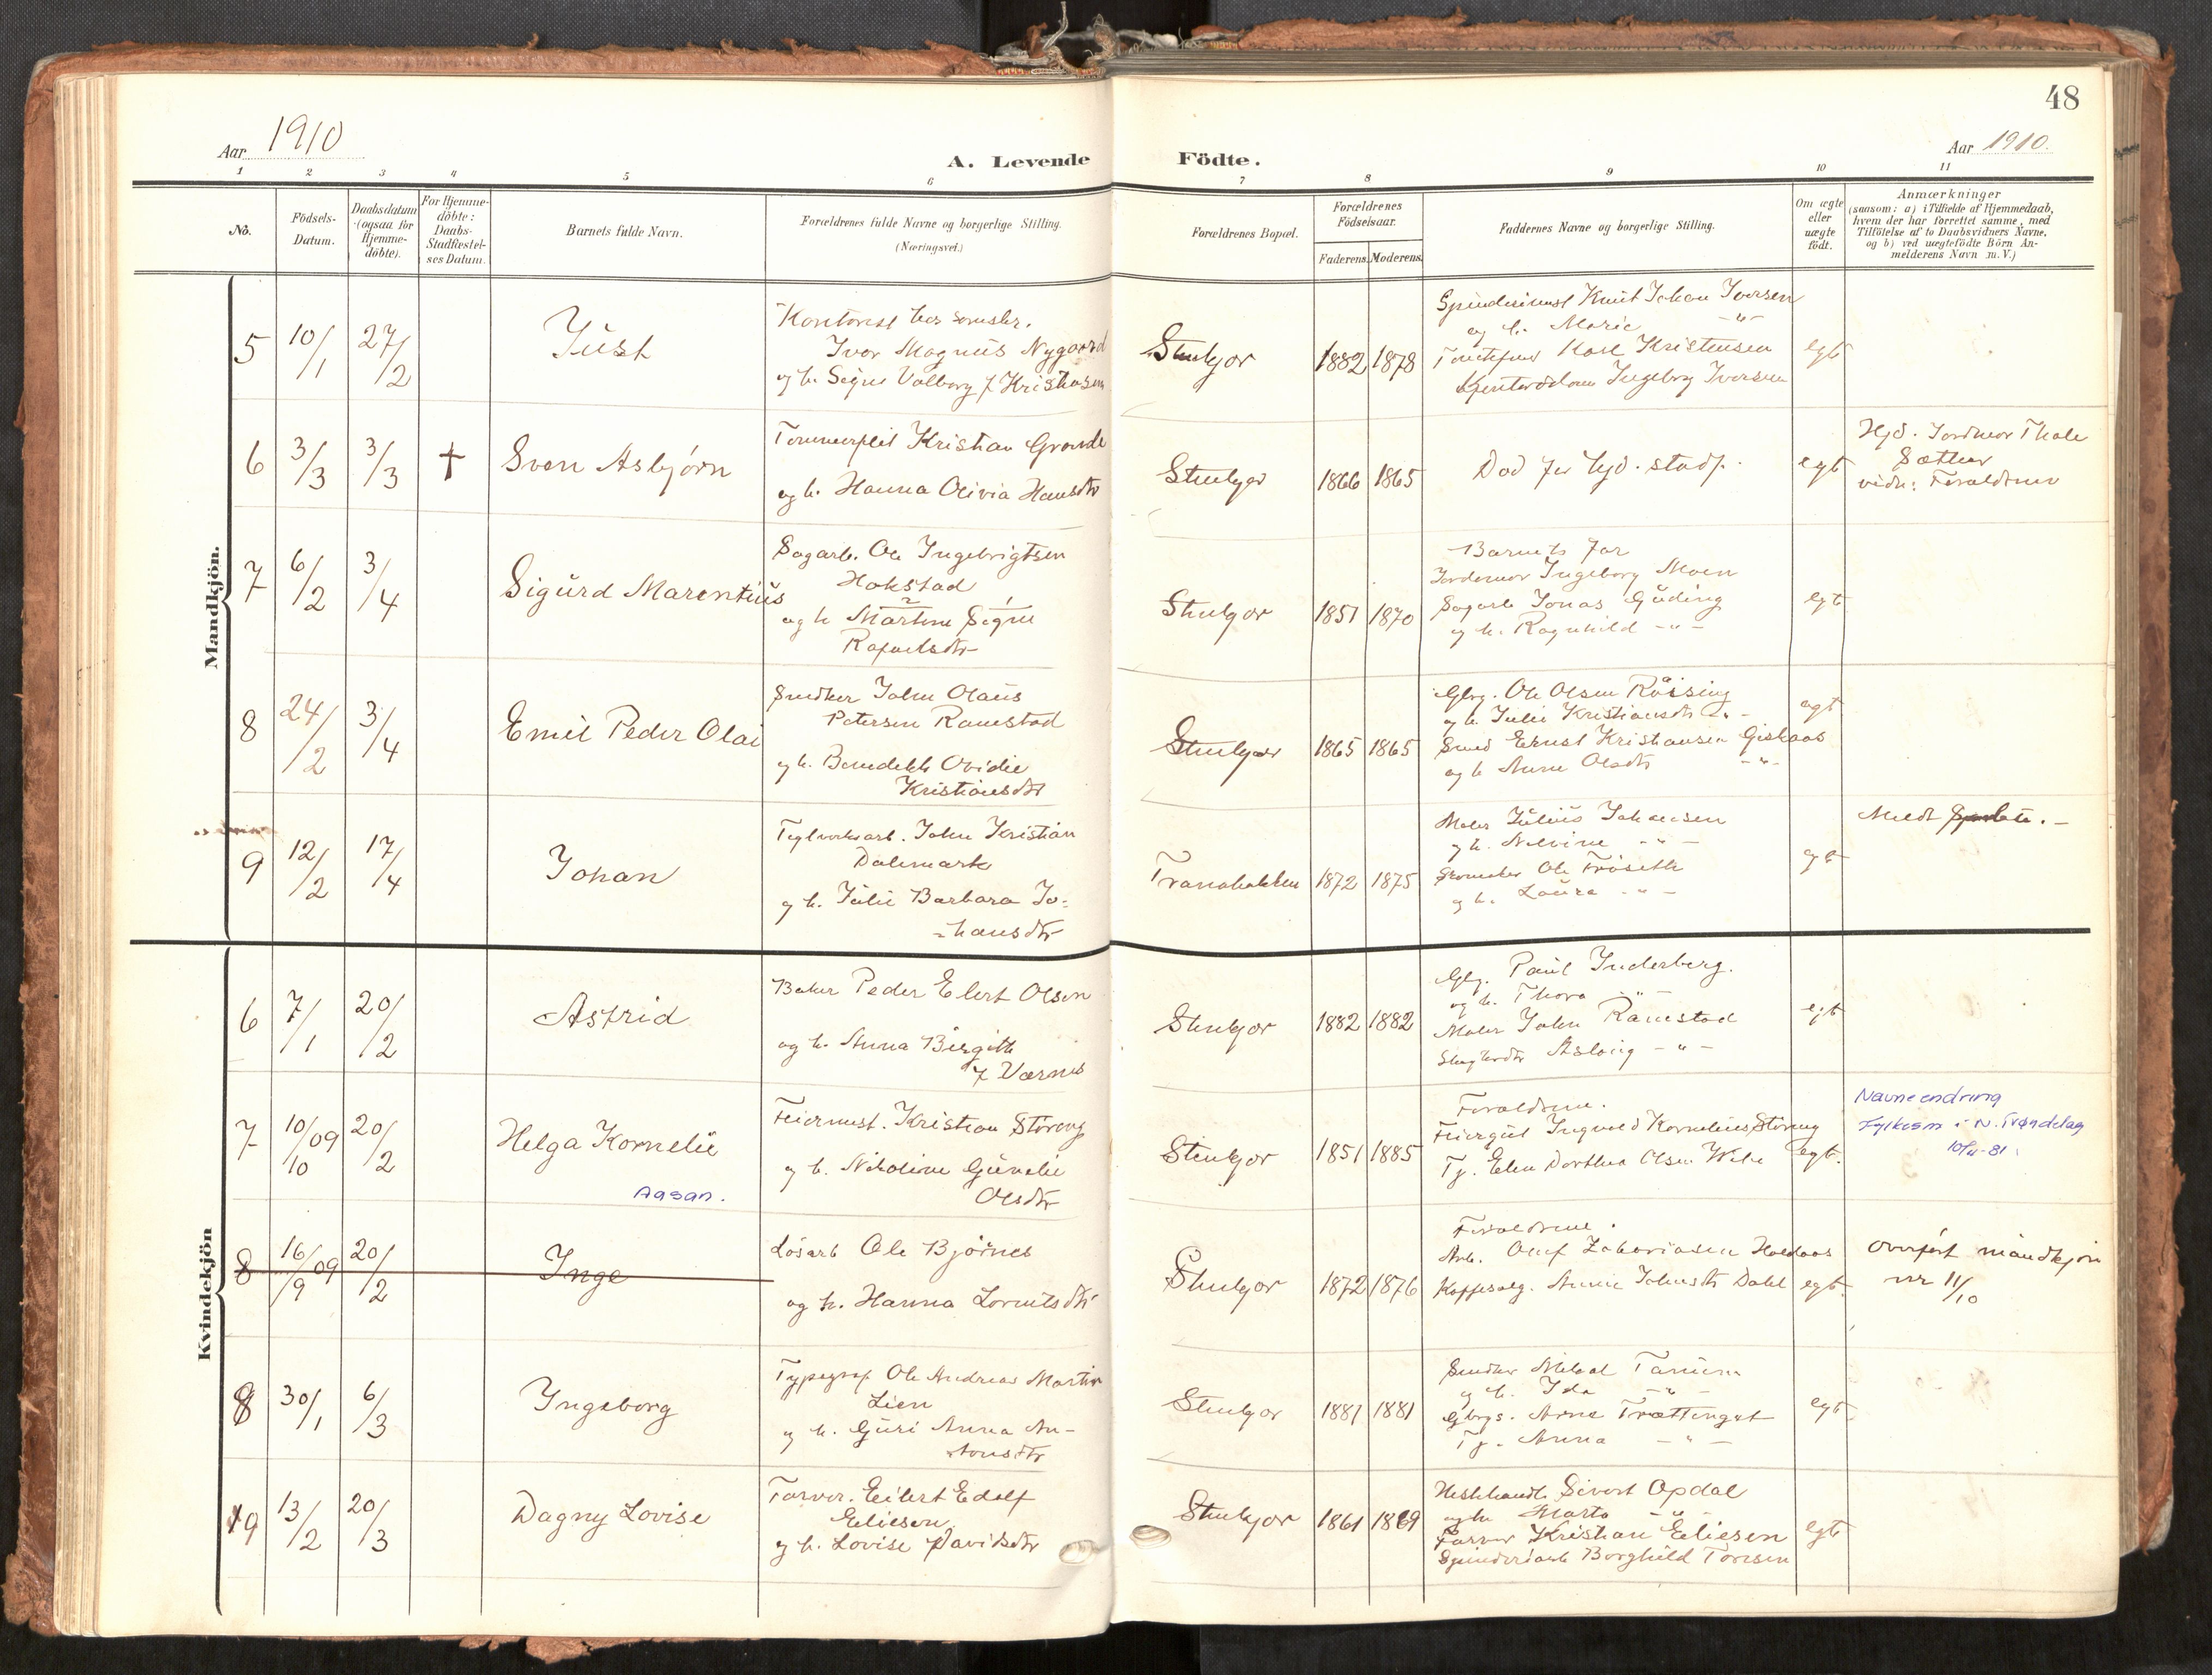 48
Aar 1910
A. Levende Födte.
Aar 1910.
1 2 3 4 5 6 7 8 9 10 11
No.
Födsels-
Datum.
Daabsdatum
(ogsaa for
Hjemme-
döbte).
For Hjemme-
döbte:
Daabs-
Stadfæstel-
ses Datum.
Barnets fulde Navn.
Forældrenes fulde Navne og borgerlige Stilling.
(Næringsvei.)
Forældrenes Bopæl.
Forældrenes
Födselsaar.
Faderens. Moderens.
Faddernes Navne og borgerlige Stilling.
Om ægte
eller
uægte
födt.
Anmærkninger
(saasom: a) i Tilfælde af Hjemmedaab,
hvem der har forrettet samme, med
Tilföielse af to Daabsvidners Navne,
og b) ved uægtefödte Börn An-
melderens Navn m.V.)
Mandkjön.
5 10/1 27/2 Just
Kontorist
Ivar Magnus Nygaard
og h. Signe Valborg f. Kristensen
Stenkjær 1882 1878
Knut Johan Iversen
og h. Marie -"-
Karl Kristensen
Ingeborg Iversen
egt
6 3/3 3/3 † Sven Asbjørn
Kristian Grande
og h. Hanna Olivia Hansdtr
Stenkjær 1866 1865
Død før hjd. stadf.
egt
Hjd. Jordmor Thale
Sæther
vidn: Forældrene
7 6/2 3/4 Sigurd Marentius
Sagarb. Ole Ingebrigtsen
Hokstad
2 1
og h Martine Signe
Rafaelsdtr
Stenkjær 1851 1870
Barnets far
Jordemor Ingeborg Moen
Sagarb Jonas Guding
og h. Ragnhild -"-
egt
8 24/2 3/4 Emil Peder Olai
Snedker John Olaus
Petersen Ramstad
og h. Benedikte Ovidie
Kristiansdtr
Stenkjær 1865 1865
Gbrg. Ole Olsen Råssing
og h. Julie Kristiansdtr -"-
Smed Ernst Kristiansen Giskaas
og h Anne Olsdtr -"-
egt
9 12/2 17/4 Johan
Teglverksarb. John Kristian
Dalemark
og h. Julie Barbara Jo=
=hansdtr
Tranabakken 1872 1875
Maler Julius Johansen
og h. Nelvine -"-
Skomaker Ole Frøseth
og h. Laura -"-
egt
Meldt
Kvindekjön
6 7/1 20/2 Astrid
Baker Peder Elert Olsen
og h. Anna Birgitte
f. Værnes
Stenkjær 1882 1882
Gbg. Paul Inderberg.
og h. Thora -"-
Maler John Ramstad
Aslaug -"-
egt
7 10/10 09 20/2 Helga Kornelie
Aasan.
Feiermest. Kristian Støreng
og h. Nikoline Gunelie
Olsdtr
Stenkjær 1851 1885
Forældrene.
Feiergut Ingvald Kornelius Støreng
Tj. Elen Dorthea Olsen
egt.
Navneendring
Fylkesm i N. Trøndelag
8 16/9 09 20/2 Inge
Løsarb Ole Bjørnes
og h. Hanna Lorntsdtr
Stenkjær 1872 1876
Forældrene.
Arb. Oluf Zakariasen Haldaas
Kaffesalg. Annie Johnsdtr Dahl
egt.
Overført mandkjøn
nr 11/10
8 30/1 6/3 Ingeborg
Typograf Ole Andreas Martin
Lien
og h. Guri Anna An-
tonsdtr
Stenkjær 1881 1881
Snedker Mikal Tanum
og h. Ida -"-
Gbrgs. Arne Trættingset
Tj. Anna -"-
egt
9 13/2 20/3 Dagny Lovise
Farver. Eilert Edolf
Eliesen
og h. Lovise Davidsdtr
Stenkjær 1861 1869
Sivert Opdal
og h. Marta -"-
Farver Kristian Eliesen
Borghild Toresen
egt